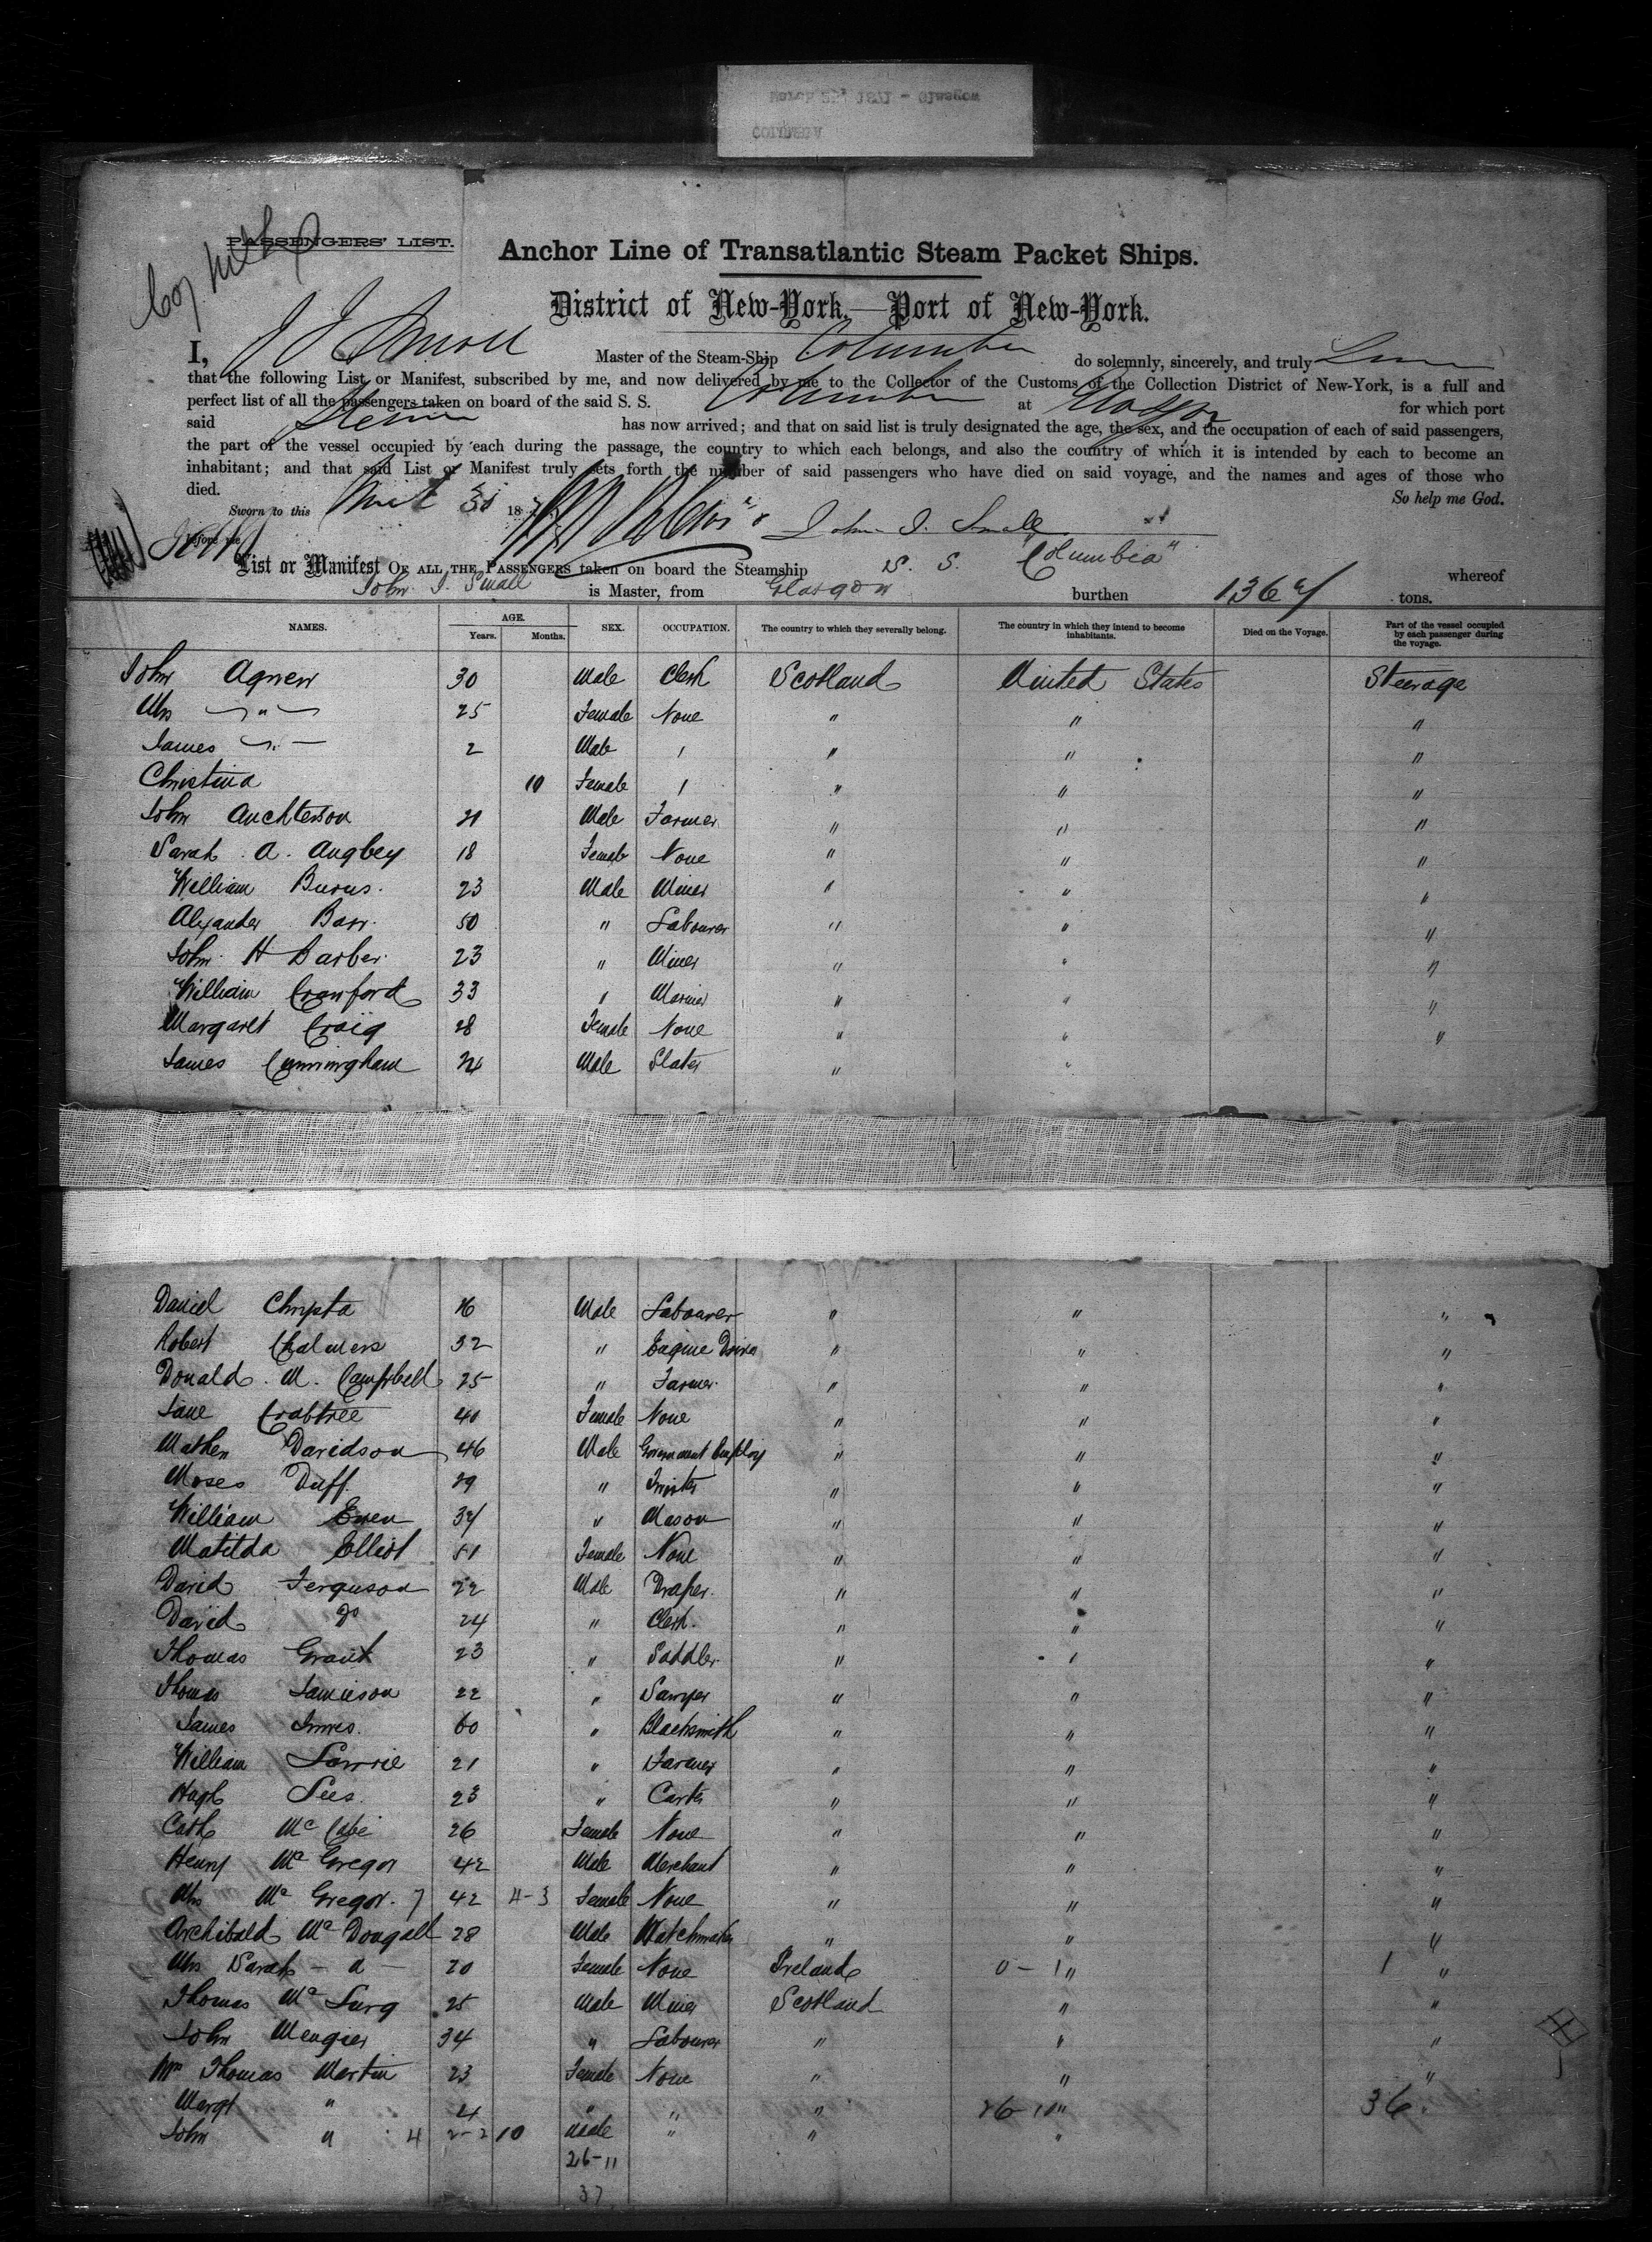 PASSENGERS' LIST.
Anchor Line of Transatlantic Steam Packet Ships.
District of New-York,—Port of New-York.
I, J J Small Master of the Steam-Ship Columbia do solemnly, sincerely, and truly
that the following List or Manifest, subscribed by me, and now delivered by me to the Collector of the Customs of the Collection District of New-York, is a full and
perfect list of all the passengers taken on board of the said S. S. Columbia at Glasgow for which port
said has now arrived; and that on said list is truly designated the age, the sex, and the occupation of each of said passengers,
the part of the vessel occupied by each during the passage, the country to which each belongs, and also the country of which it is intended by each to become an
inhabitant; and that said List or Manifest truly sets forth the number of said passengers who have died on said voyage, and the names and ages of those who
died. So help me God.
Sworn to this 18 John J. Small
before me
List or Manifest OF ALL THE PASSENGERS taken on board the Steamship S. S. "Columbia" whereof
John J. Small is Master, from Glasgow burthen tons.
NAMES. AGE. Years. Months. SEX. OCCUPATION. The country to which they severally belong. The country in which they intend to become inhabitants. Died on the Voyage. Part of the vessel occupied by each passenger during the voyage.
John Agnew 30 Male Clerk Scotland United States Steerage
Mrs " 25 Female None " " "
James " 2 Male " " " "
Christina 10 Female " " " "
John Auchterson 21 Male Farmer " " "
Sarah A. Angbey 18 Female None " " "
William Burns. 23 Male Miner " " "
Alexander Barr. 50 " Labourer " " "
John H Barber. 23 " Miner " " "
William Crawford 33 " Mariner " " "
Margaret Craig 28 Female None " " "
James Cunningham 24 Male Slater " "
Daniel 26 Male Labourer " " "
Robert Chalmers 32 " Engine Driver " " "
Donald M. Campbell 25 " Farmer. " " "
Jane Crabtree 40 Female None " " "
Mathew Davidson 46 Male Government Employ " " "
Moses Duff. 29 " " " "
William Ewen 34 " Mason " " "
Matilda Elliot 51 Female None " " "
David Ferguson 22 Male Draper. " " "
David Do 24 " Clerk. " " "
Thomas Grant 23 " Saddler. " " "
Thomas Jamieson 22 " Sawyer " " "
James Innes. 60 " Blacksmith " " "
William Lawrie 21 " Farmer " " "
Hugh Lees. 23 " Carter " " "
Cath Mc Cabe 26 Female None " " "
Henry Mc Gregor 42 Male Merchant " " "
Mrs Mc Gregor. 7 42 4-3 Female None " " "
Archibald Mc Dougall 28 Male Watchmaker " " "
Mrs Sarah - " - 20 Female None Ireland 0-1 " 1 "
Thomas Mc Lurg 25 Male Miner Scotland " "
John Menzies 34 " Labourer " " "
Mrs Thomas Martin 23 Female None " " "
Margt " 4 " " " 26-10 " 36
John " 4 2-2 10 Male " " "
26-11
37